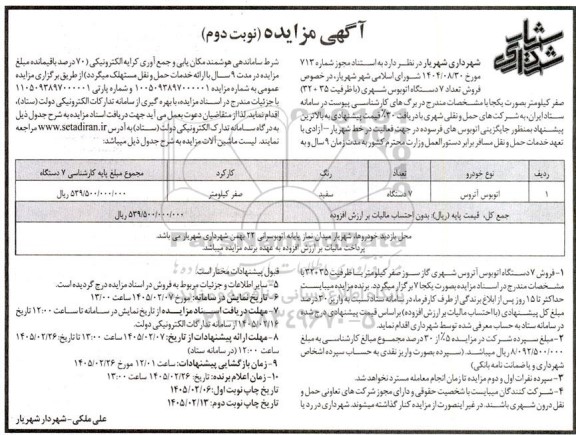 آگهی مزایده (نوبت دوم)
شهرداری شهریار
شهرداری شهریار در نظر دارد به استناد مجوز شماره ۷۱۳
مورخ ۱۴۰۴/۰۸/۳۰ شورای اسلامی شهر شهریار، در خصوص
فروش تعداد ۷ دستگاه اتوبوس شهری (با ظرفیت ۳۵+۳۲)
صفر کیلومتر بصورت یکجا با مشخصات مندرج در برگ های کارشناسی پیوست در سامانه
ستاد ایران، به شرکت های حمل و نقلی شهری با دریافت ۳۰٪ قیمت پیشنهادی به بالاترین
پیشنهاد بمنظور جایگزینی اتوبوس های فرسوده در جهت فعالیت در خط شهریار - آزادی با
تعهد خدمات حمل و نقل مسافر برابر دستورالعمل وزارت محترم کشور به مدت زمان ۹ سال و به
شرط ساماندهی هوشمند مکان یابی و جمع آوری کرایه الکترونیکی (۷۰ درصد باقیمانده مبلغ
مزایده در مدت ۹ سال با ارائه خدمات حمل و نقل مستهلک میگردد) از طریق برگزاری مزایده
عمومی به شماره مزایده ۵۰۰۵۰۹۳۸۹۷۰۰۰۰۰۱ و شماره پارتی ۱۱۰۵۰۹۳۸۹۷۰۰۰۰۰۱
با جزئیات مندرج در اسناد مزایده، با بهره گیری از سامانه تدارکات الکترونیکی دولت (ستاد)،
اقدام نماید. لذا از متقاضیان دعوت بعمل می آید جهت دریافت اسناد مزایده به شرح جدول ذیل
به درگاه سامانه تدارکات الکترونیکی دولت (ستاد) به آدرس www.setadiran.ir مراجعه
نمایند. لیست ماشین آلات مزایده به شرح جدول ذیل میباشد:
ردیف نوع خودرو تعداد رنگ کارکرد مجموع مبلغ پایه کارشناسی ۷ دستگاه
۱ اتوبوس آتروس ۷ دستگاه سفید صفر کیلومتر ۵۳۹/۵۰۰/۰۰۰/۰۰۰ ریال
جمع کل، قیمت پایه (ریال): بدون احتساب مالیات بر ارزش افزوده ۵۳۹/۵۰۰/۰۰۰/۰۰۰ ریال
محل بازدید خودروها: شهریار میدان نماز پایانه اتوبوسرانی ۲۲ بهمن شهرداری شهریار می باشد
پرداخت مالیات بر ارزش افزوده به عهده برنده مزایده میباشد.
۱- فروش ۷ دستگاه اتوبوس آتروس شهری گاز سوز صفر کیلومتر با ظرفیت ۳۵+۳۲ با
مشخصات مندرج در اسناد مزایده بصورت یکجا برگزار میگردد. برنده مزایده میبایست
حداکثر تا ۱۵ روز پس از ابلاغ برندگی از طرف کارفرما، در سامانه ستاد نسبت به واریز ۳۰ درصد
مبلغ کل پیشنهادی (با احتساب مالیات بر ارزش افزوده) بر اساس قیمت پیشنهادی درج شده
در سامانه ستاد به حساب معرفی شده توسط شهرداری اقدام نماید.
۲- مبلغ سپرده شرکت در مزایده ۵٪ از ۳۰ درصد مجموع مبالغ کارشناسی به مبلغ
۸/۰۹۲/۵۰۰/۰۰۰ ریال میباشد. (سپرده بصورت واریز نقدی به حساب سپرده اشخاص
شهرداری و یا ضمانت نامه بانکی)
۳- سپرده نفرات اول و دوم مزایده تا زمان انجام معامله مسترد نخواهد شد.
۴- شرکت کنندگان میبایست با شخصیت حقوقی و دارای مجوز شرکت های تعاونی حمل و
نقل درون شهری باشند. در غیر اینصورت از مزایده کنار گذاشته میشوند. شهرداری در رد یا
قبول پیشنهادات مختار است.
۵- سایر اطلاعات و جزئیات مربوط به فروش در اسناد مزایده درج گردیده است.
۶- تاریخ نمایش در سامانه: مورخ ۱۴۰۵/۰۲/۰۷ ساعت ۱۳/۰۰
۷- مهلت دریافت اسناد مزایده: از تاریخ نمایش در سامانه تا ساعت ۱۲/۰۰ تاریخ
۱۴۰۵/۰۲/۱۶ از سامانه تدارکات الکترونیکی دولت.
۸- مهلت ارائه پیشنهادات از تاریخ: ۱۴۰۵/۰۲/۰۷ ساعت ۱۳/۰۰ تا تاریخ ۱۴۰۵/۰۲/۲۶
ساعت ۱۲/۰۰ (در سامانه ستاد)
۹- زمان بازگشایی پیشنهادات: ساعت ۱۲/۰۱ مورخ ۱۴۰۵/۰۲/۲۶
۱۰- زمان اعلام برنده: تاریخ ۱۴۰۵/۰۲/۲۶ ساعت ۱۳/۰۰
تاریخ چاپ نوبت اول: ۱۴۰۵/۰۲/۰۶
تاریخ چاپ نوبت دوم: ۱۴۰۵/۰۲/۱۳
علی ملکی - شهردار شهریار